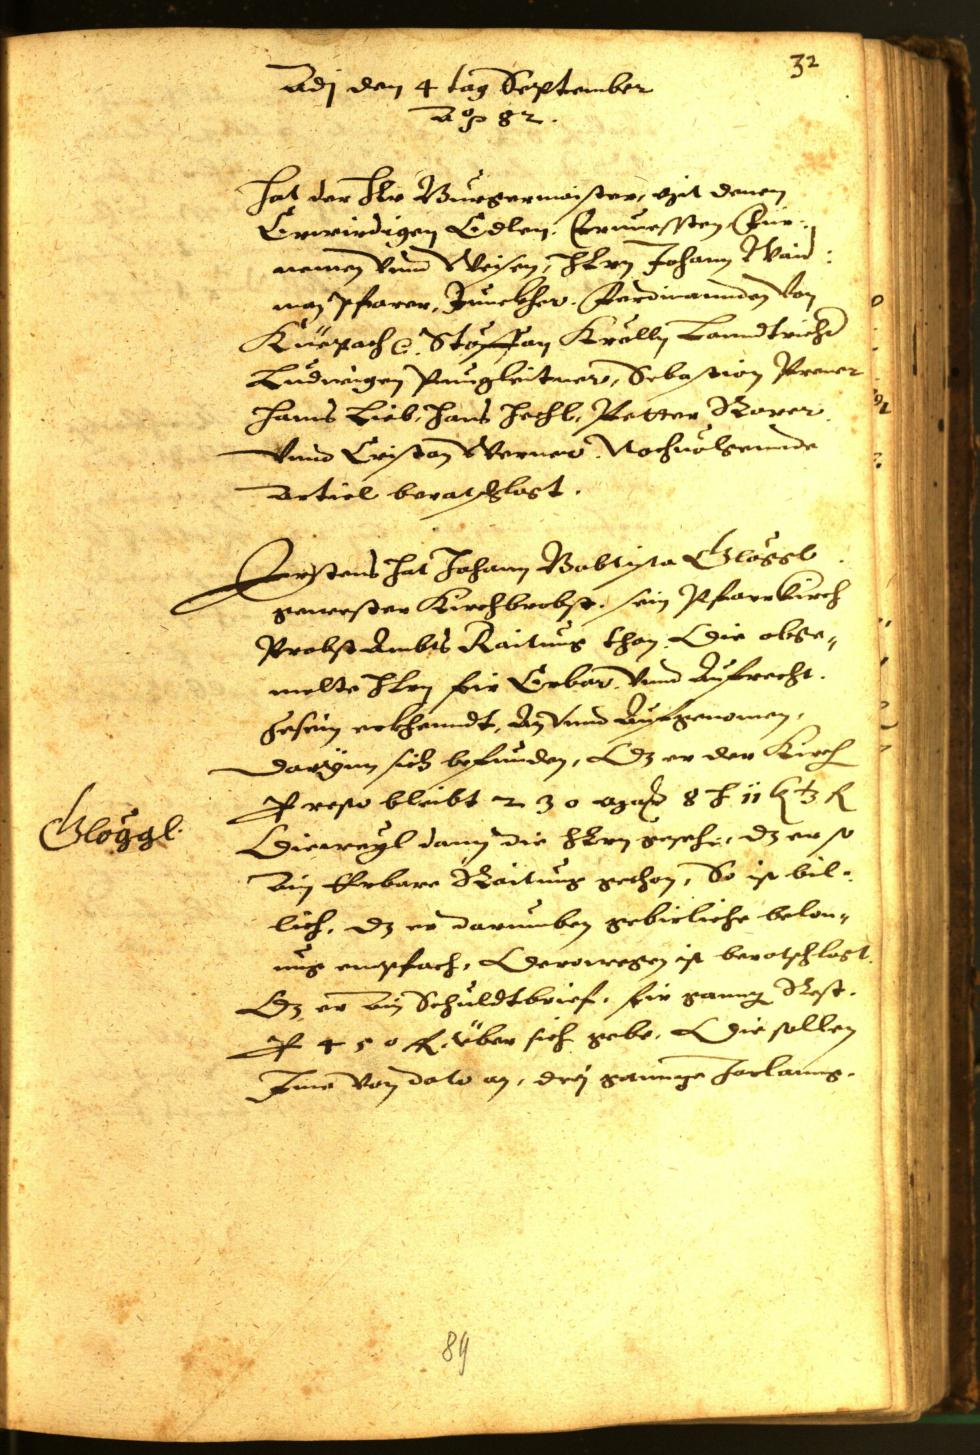 32
Adj den 4 tag September
Ao 82.
Hat der Herr Burgermaister, mit denen
Erwirdigen Edlen, Ernuessten, Für-
nemen vnnd Weisen, Herrn Johann Waid-
man Pfarer, Junckher Ferdinannden von
Küepach, Stoffan Krölln Lanndtricht
Ludwigen Paugleitner, Sebastion Prener
Hanns Lieb, Hans Hechl, Petter Rorer
Vnnd Cristan Werner, Nachuolgennde
Articl beratschlagt.
Erstens hat Johann Babtista Glöggl
gewester Kirchbrobst, sein Pfarrkirch
Probst Ambts Raitung than, Die obge-
melte Herrn für Erbar vnnd Aufrecht
gesein erkhenndt, An vnnd Aufgenomen,
Darynn sich befunden, Dz er der Kirch
Per resto bleibt 230 8 11
Glöggl.
Dieweyl dann die Herrn gesehen, dz er so
Ain Erbare Raitung gethan, So ist bil-
lich, dz er darumben gebirliche belon-
ung empfach, Derowegen ist beratschlagt
Dz er Ain Schuldtbrief, für gannz Rest
Per 450 fl. über sich gebe, Die sollen
Ime von dato an, drej gannze Jarlanng.
89